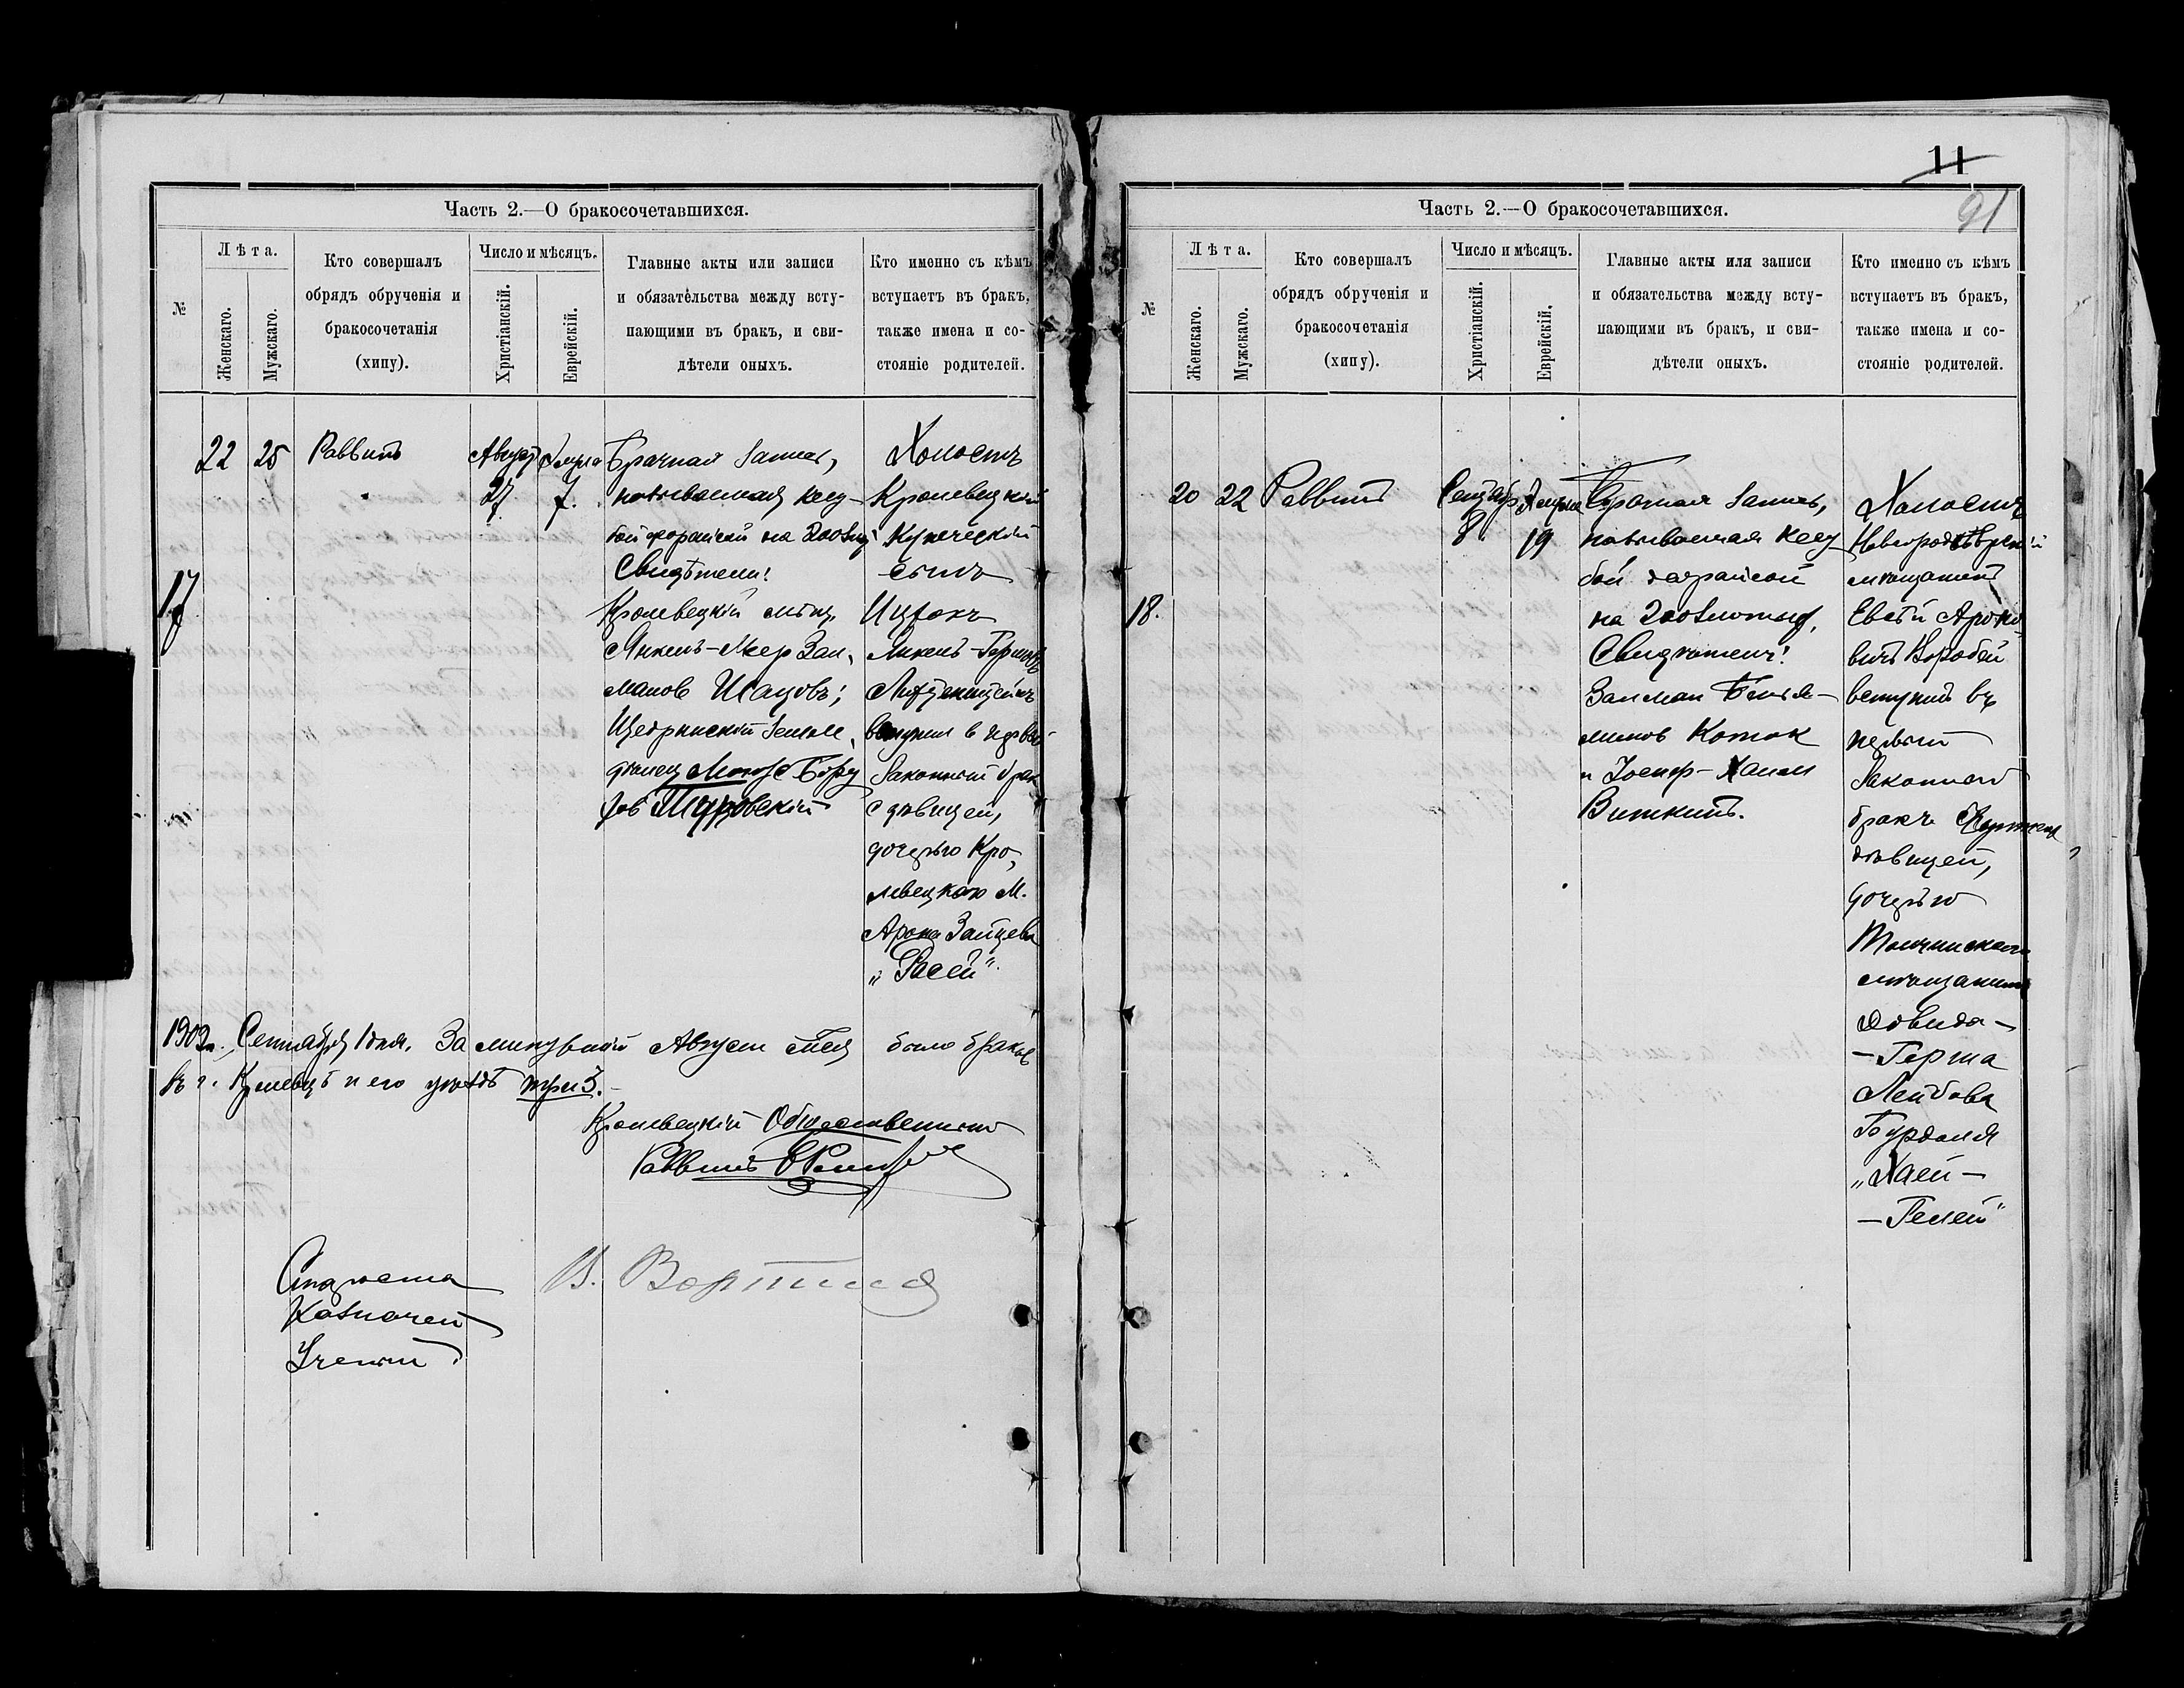 Часть 2.—О бракосочетавшихся.
№
Лѣта.
Женскаго.
Мужскаго.
Кто совершалъ
обрядъ обрученія и
бракосочетанія
(хипу).
Число и мѣсяцъ.
Христіанскій.
Еврейскій.
Главные акты или записи
и обязательства между всту-
пающими въ бракъ, и сви-
дѣтели оныхъ.
Кто именно съ кѣмъ
вступаетъ въ бракъ,
также имена и со-
стояніе родителей.
17
22
25
Раввинъ
Август
27
Элула
7.
Брачная запись,
называемая кесу-
бой дорайсой на 200 злот
Свидѣтели:
Кролевецкій мѣщ.
Янкель-Меер Зал-
манов Исацовъ;
Щедринскій землe-
дѣлец Мовзс Бору
хов
Холостъ
Кролевецкій
Купеческій
сынъ
Ицхокъ
Янкель-Гершовъ
вступил в первый
Законный брак
с дѣвицей,
дочерью Кро-
левецкаго М.
Арона Зайцева
„Расей".
1909 г. Сентября 1 дня. За минувшій Август мѣсяц было браков
в г. Кролевцѣ и его уѣздѣ три 3.
Кролевецкій Общественный
Раввинъ
Староста
Казначей
Ученый
11
91
Часть 2.—О бракосочетавшихся.
№
Лѣта.
Женскаго.
Мужскаго.
Кто совершалъ
обрядъ обрученія и
бракосочетанія
(хипу).
Число и мѣсяцъ.
Христіанскій.
Еврейскій.
Главные акты или записи
и обязательства между всту-
пающими въ бракъ, и сви-
дѣтели оныхъ.
Кто именно съ кѣмъ
вступаетъ въ бракъ,
также имена и со-
стояніе родителей.
18.
20
22
Раввинъ
Сентябр
8
Элула
19
Брачная запись,
называемая кесу-
бой дорайсой
на 200 злотыхъ.
Свидѣтели:
Залман Бенья-
минов Коток
и Іосиф-Хаим
Виткинъ.
Холостъ
Новгородсѣверскій
мѣщанинъ
Евсѣй Ароно-
вичъ Воробей
вступилъ въ
первый
Законный
бракъ
дѣвицей,
дочерью
мѣщанина
Довида-
-Герша
Лейбова
Бурдаля
„Хаей-
-Гелей"